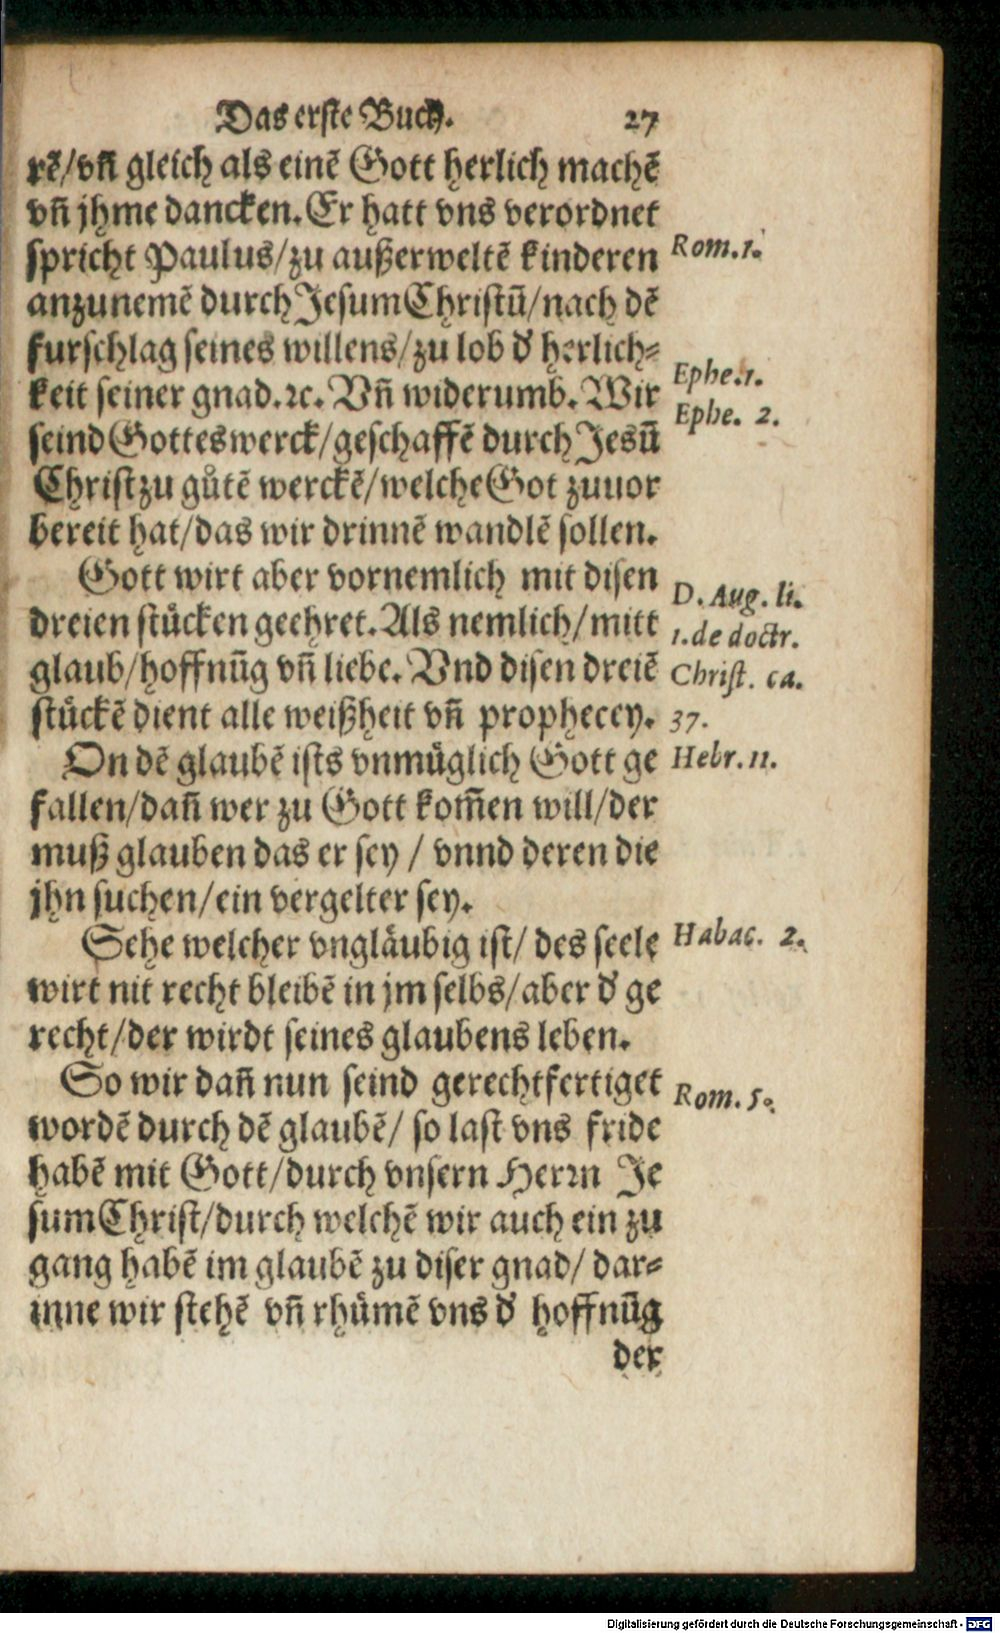 Das erste Buch. 27
rẽ/vñ gleich als einẽ Gott herlich machẽ
vñ jhme dancken. Er hatt vns verordnet
spricht Paulus/zu außerweltẽ kinderen
Rom.1.
anzunemẽ durch Jesum Christũ/nach dẽ
furschlag seines willens/zu lob dʼ herlich=
keit seiner gnad.ꝛc. Vñ widerumb. Wir
Ephe.1.
seind Gottes werck/geschaffẽ durch Jesũ
Ephe. 2.
Christ zu gůtẽ werckẽ/welche Got zuuor
bereit hat/das wir drinnẽ wandlẽ sollen.
Gott wirt aber vornemlich mit disen
D. Aug. li.
dreien stücken geehret. Als nemlich/mitt
1.de doctr.
glaub/hoffnũg vñ liebe. Vnd disen dreiẽ
Christ. ca.
stückẽ dient alle weißheit vñ prophecey.
37.
On dẽ glaubẽ ists vnmüglich Gott ge
Hebr.11.
fallen/dañ wer zu Gott kom̃en will/der
muß glauben das er sey / vnnd deren die
jhn suchen/ein vergelter sey.
Sehe welcher vngläubig ist/ des seele
Habac. 2.
wirt nit recht bleibẽ in jm selbs/aber dʼ ge
recht/der wirdt seines glaubens leben.
So wir dañ nun seind gerechtfertiget
Rom. 5.
wordẽ durch dẽ glaubẽ/ so last vns fride
habẽ mit Gott/durch vnsern Herꝛn Je
sum Christ/durch welchẽ wir auch ein zu
gang habẽ im glaubẽ zu diser gnad/ dar=
inne wir stehẽ vñ rhümẽ vns dʼ hoffnũg
der
Digitalisierung gefördert durch die Deutsche Forschungsgemeinschaft - DFG